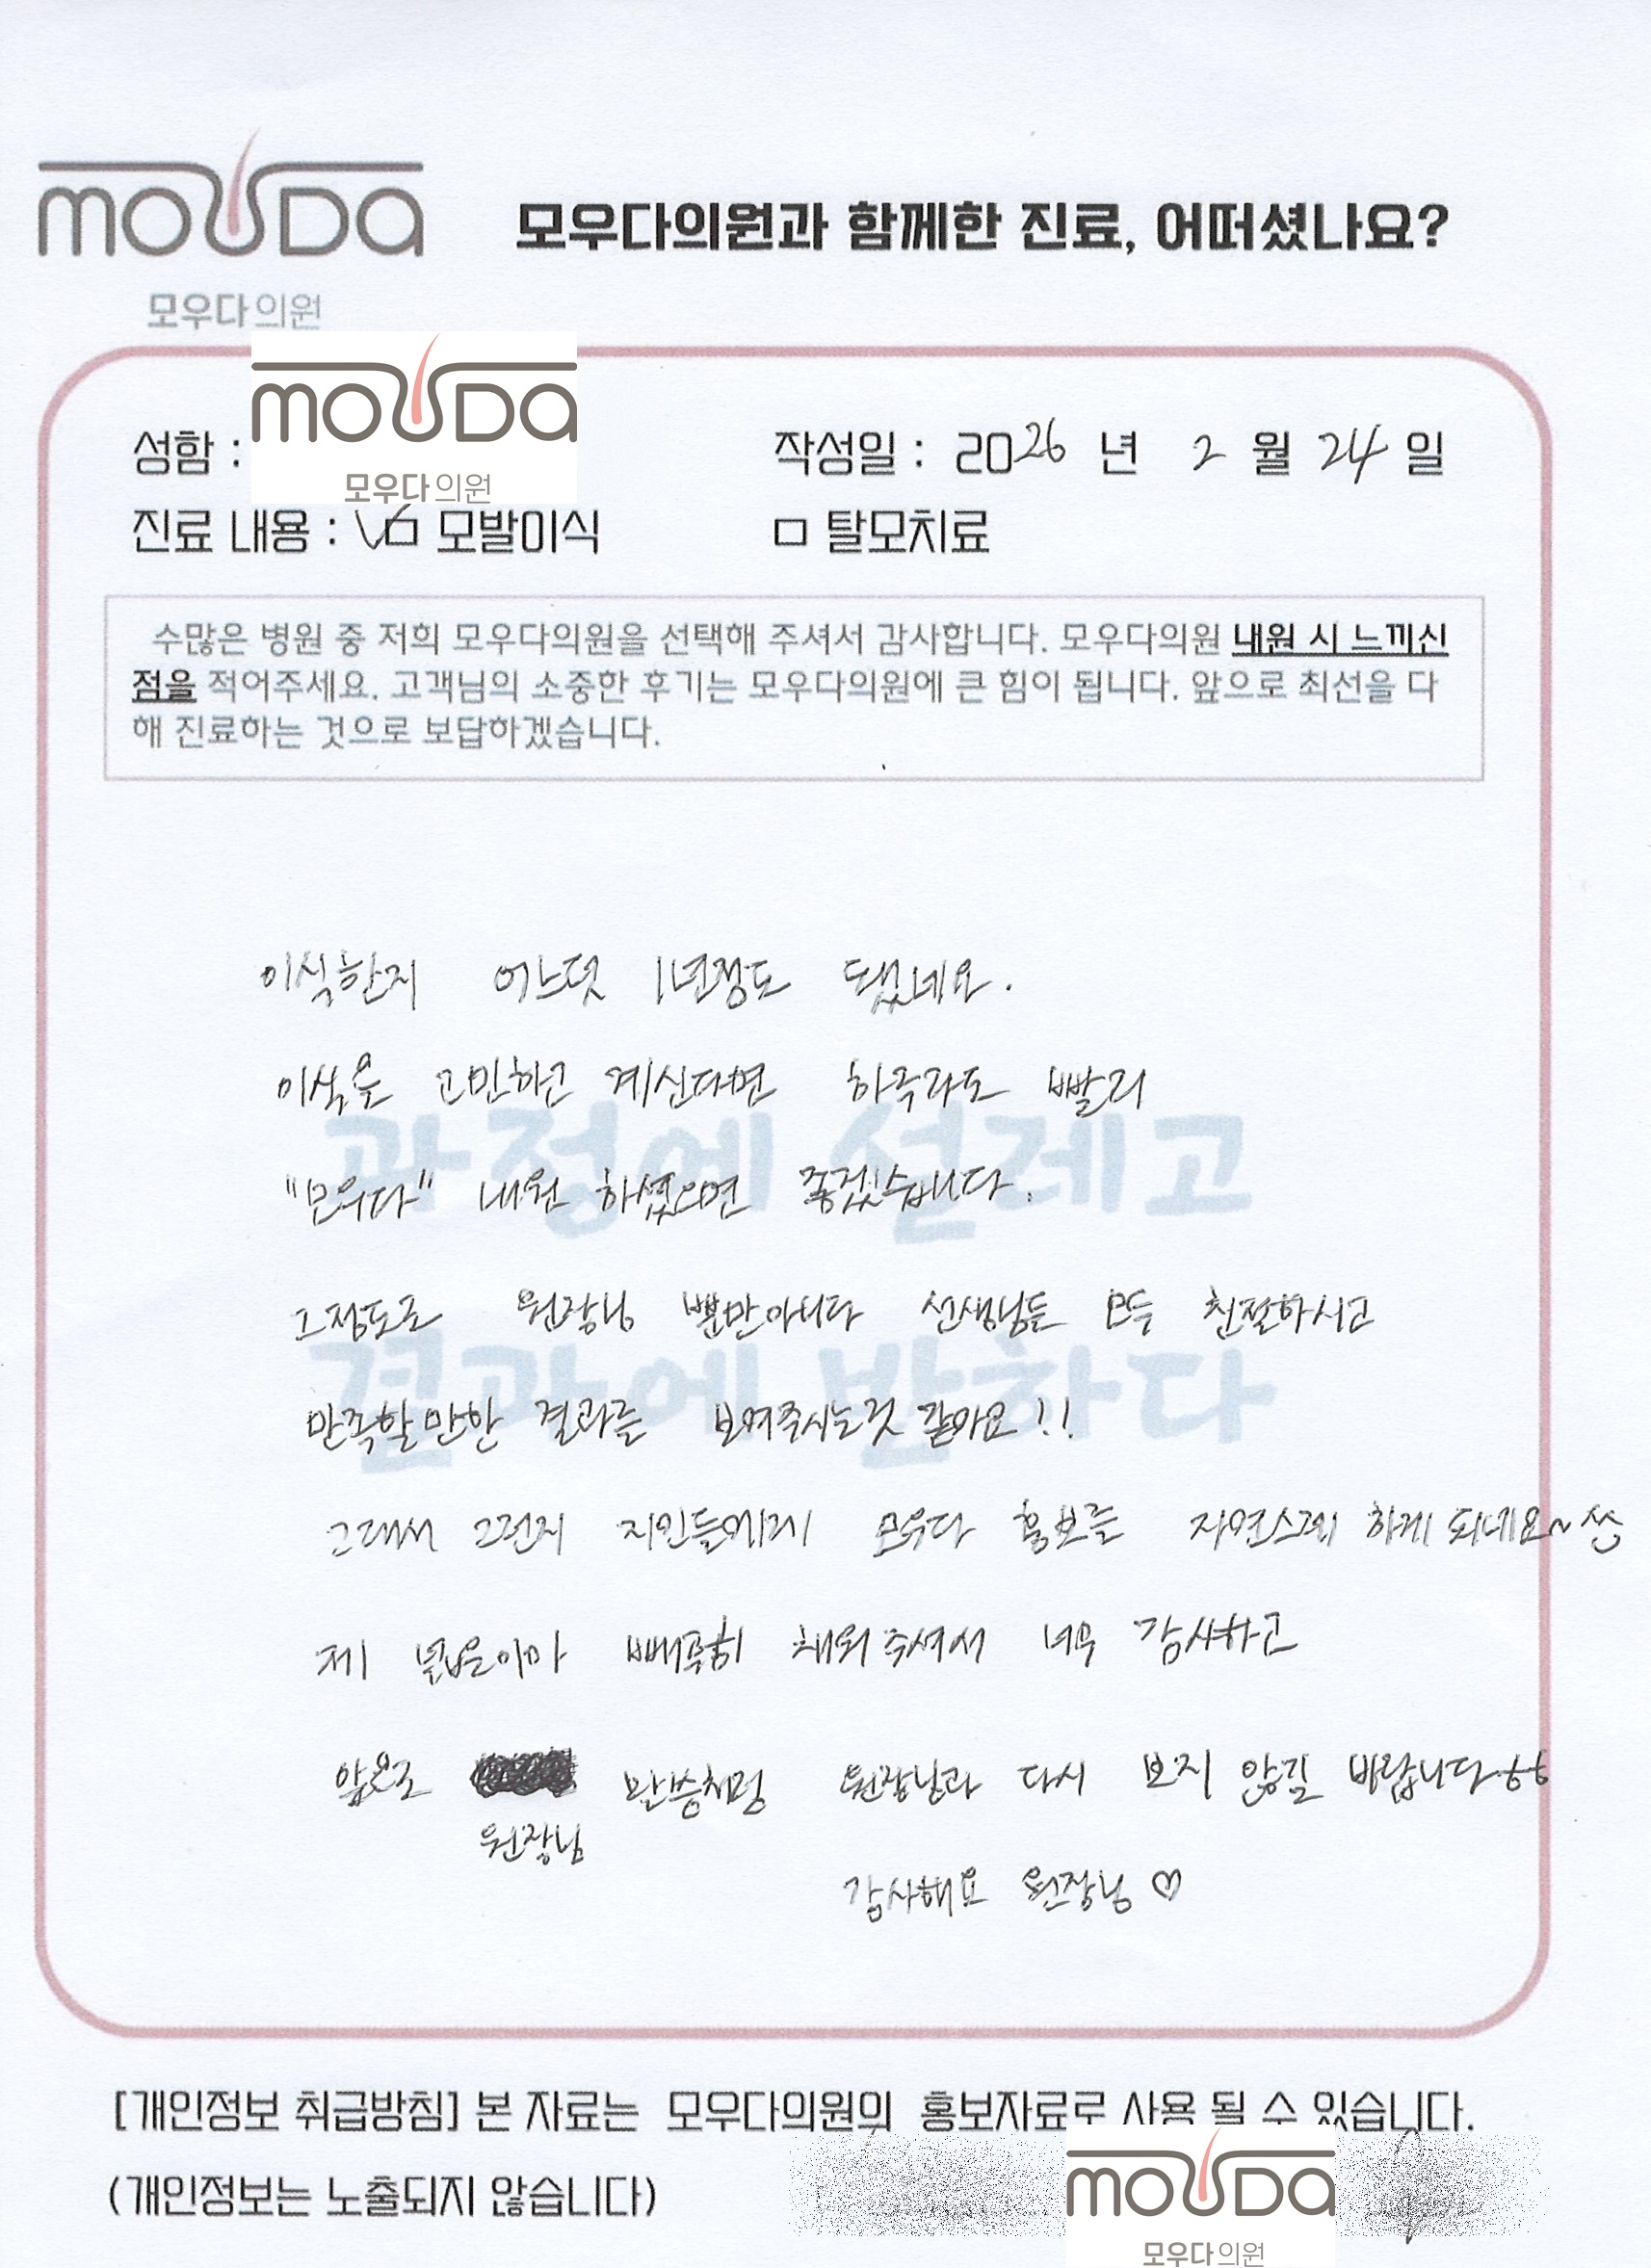 mouDa
모우다의원과 함께한 진료, 어떠셨나요?
모우다의원
mouDa
모우다의원
성함 :
작성일 : 2026 년 2 월 24 일
진료 내용 : ☑ 모발이식 □ 탈모치료
수많은 병원 중 저희 모우다의원을 선택해 주셔서 감사합니다. 모우다의원 내원 시 느끼신
점을 적어주세요. 고객님의 소중한 후기는 모우다의원에 큰 힘이 됩니다. 앞으로 최선을 다
해 진료하는 것으로 보답하겠습니다.
과정에 설레고
결과에 반하다
이식한지 어느덧 1년정도 됐네요.
이식을 고민하고 계신다면 하루라도 빨리
"모우다" 내원 하셨으면 좋겠습니다.
그정도로 원장님 뿐만아니다 선생님들 모두 친절하시고
만족할만한 결과를 보여주시는것 같아요!!
그래서 그런지 지인들에게 모우다 홍보를 자연스레 하게 되네요~
제 넓은이마 빼곡히 채워주셔서 너무 감사하고
앞으로 원장님 말씀처럼 원장님과 다시 보지 않길 바랍니다ㅎㅎ
감사해요 원장님 ♡
[개인정보 취급방침] 본 자료는 모우다의원의 홍보자료로 사용 될 수 있습니다.
(개인정보는 노출되지 않습니다)
mouDa
모우다의원